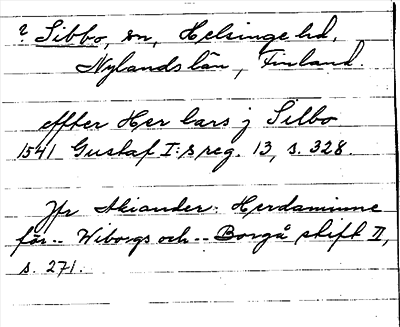 ? Sibbo, sn, Helsinge hd,
Nylands län, Finland.
efter Her lars j Silbo
1541 Gustaf I:s reg. 13, s. 328.
Jfr Akiander: Herdaminne
för -- Wiborgs och -- Borgå stift II,
s. 271.